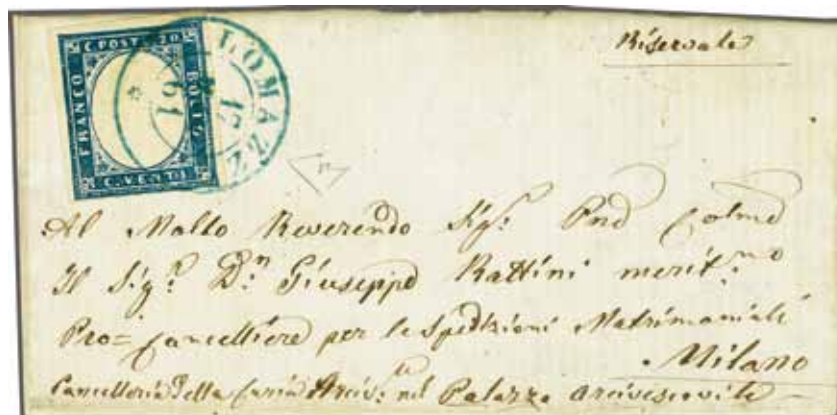 C. POSTE 20
FRANCO
BOLLO
C. VENTI
LOMAZZ
17
61
Riservata
Al Molto Reverendo Sig.r Pnd Colmo
Il Sig.r D.n Giuseppe Rattini merit.mo
Pro=Cancelliere per le Spedizioni Matrimoniali
Milano
Cancelleria della Curia Arciv.le nel Palazzo Arcivescovile